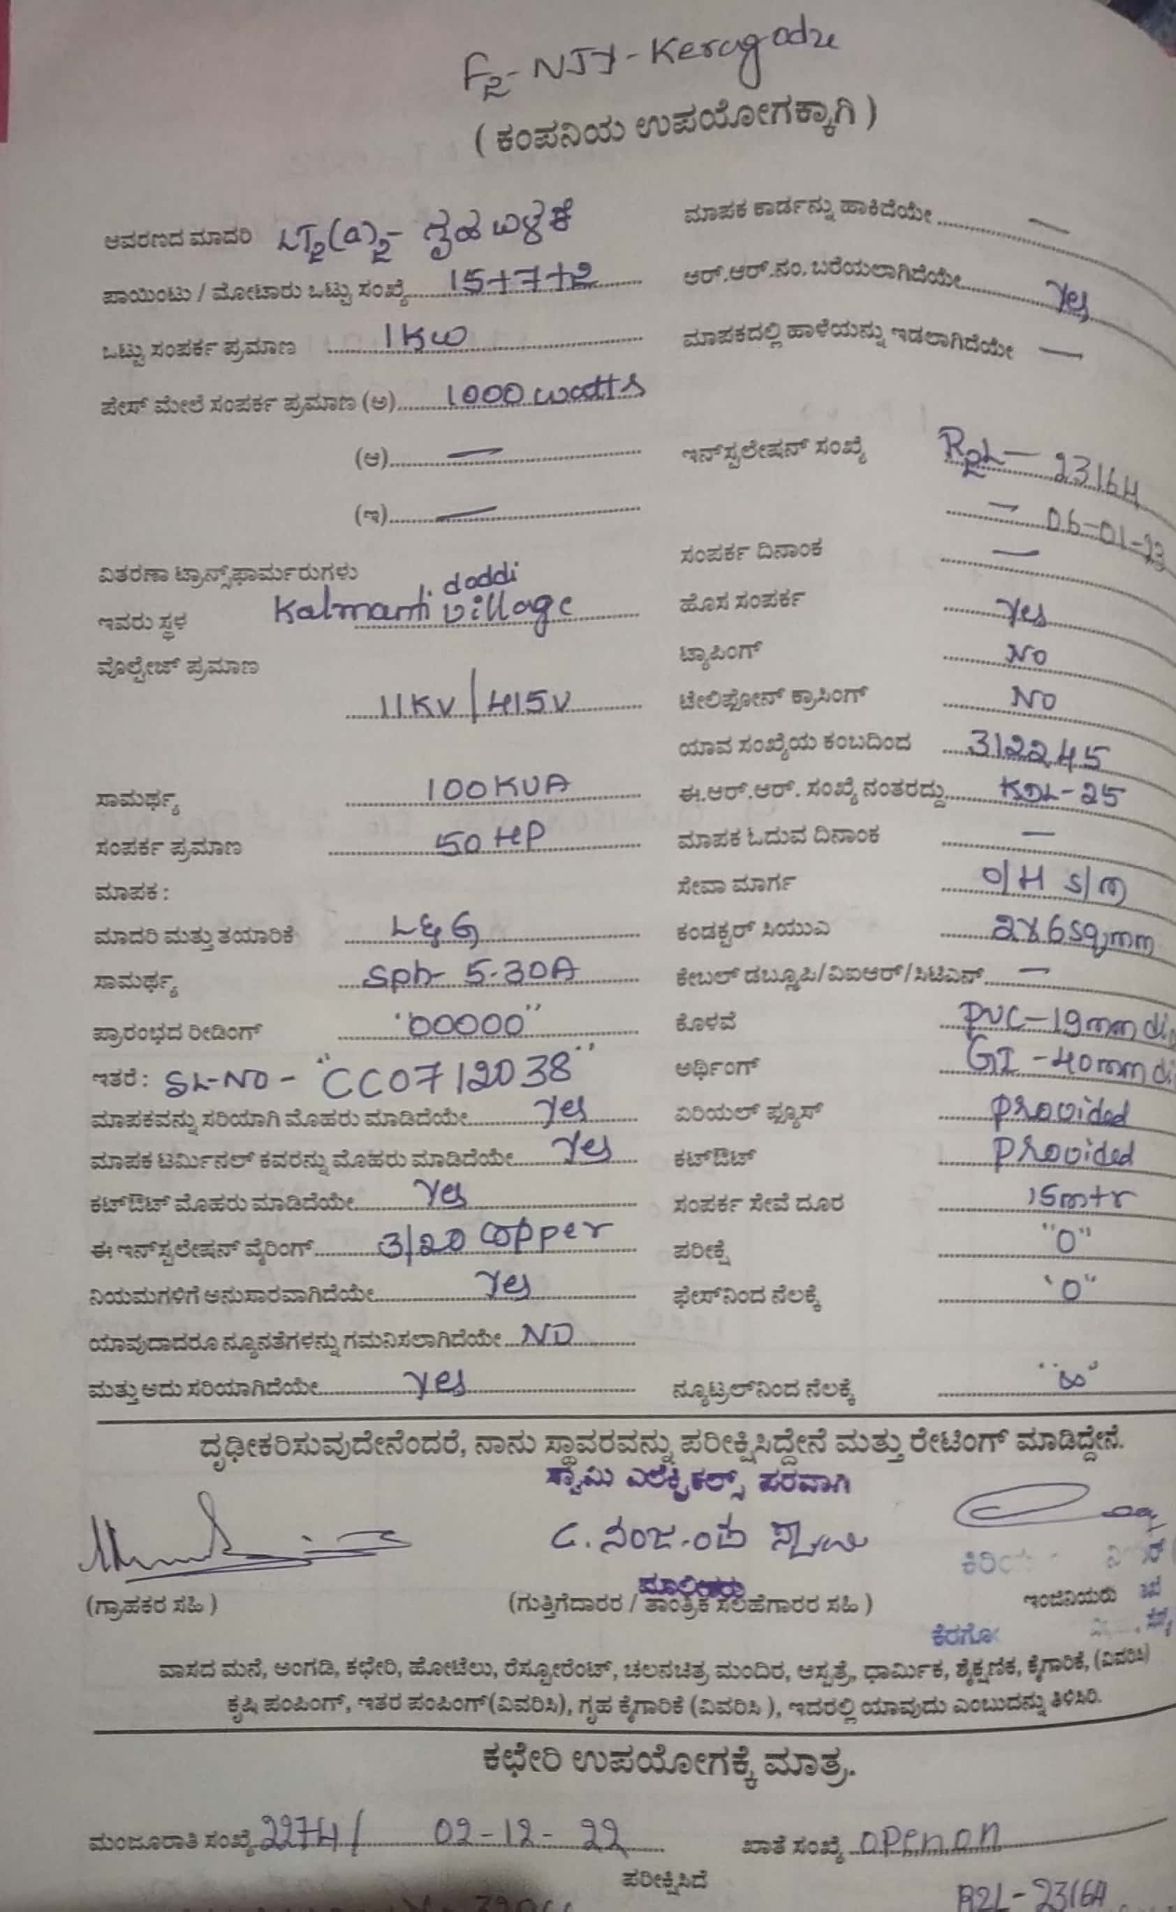 F2-NJY-Keragodu
( ಕಂಪನಿಯ ಉಪಯೋಗಕ್ಕಾಗಿ )
ಆವರಣದ ಮಾದರಿ LT2(a)2- ಗೃಹ ಬಳಕೆ
ಪಾಯಿಂಟು / ಮೋಟಾರು ಒಟ್ಟು ಸಂಖ್ಯೆ 15+7+2
ಒಟ್ಟು ಸಂಪರ್ಕ ಪ್ರಮಾಣ 1KW
ಫೇಸ್ ಮೇಲೆ ಸಂಪರ್ಕ ಪ್ರಮಾಣ (ಅ) 1000 watts
(ಆ) —
(ಇ) —
ವಿತರಣಾ ಟ್ರಾನ್ಸ್‌ಫಾರ್ಮರುಗಳು
ಇವರು ಸ್ಥಳ Kalmanti doddi village
ವೋಲ್ಟೇಜ್ ಪ್ರಮಾಣ
11KV/415V
ಸಾಮರ್ಥ್ಯ 100KVA
ಸಂಪರ್ಕ ಪ್ರಮಾಣ 50 HP
ಮಾಪಕ :
ಮಾದರಿ ಮತ್ತು ತಯಾರಿಕೆ L&G
ಸಾಮರ್ಥ್ಯ Sph- 5-30A
ಪ್ರಾರಂಭದ ರೀಡಿಂಗ್ "00000"
ಇತರೆ : SL-NO - "CC0712038"
ಮಾಪಕವನ್ನು ಸರಿಯಾಗಿ ಮೊಹರು ಮಾಡಿದೆಯೇ Yes
ಮಾಪಕ ಟರ್ಮಿನಲ್ ಕವರನ್ನು ಮೊಹರು ಮಾಡಿದೆಯೇ Yes
ಕಟ್‌ಔಟ್ ಮೊಹರು ಮಾಡಿದೆಯೇ Yes
ಈ ಇನ್‌ಸ್ಟಲೇಷನ್ ವೈರಿಂಗ್ 3/20 Copper
ನಿಯಮಗಳಿಗೆ ಅನುಸಾರವಾಗಿದೆಯೇ Yes
ಯಾವುದಾದರೂ ನ್ಯೂನತೆಗಳನ್ನು ಗಮನಿಸಲಾಗಿದೆಯೇ NO
ಮತ್ತು ಅದು ಸರಿಯಾಗಿದೆಯೇ Yes
ಮಾಪಕ ಕಾರ್ಡನ್ನು ಹಾಕಿದೆಯೇ —
ಆರ್.ಆರ್.ನಂ. ಬರೆಯಲಾಗಿದೆಯೇ Yes
ಮಾಪಕದಲ್ಲಿ ಹಾಳೆಯನ್ನು ಇಡಲಾಗಿದೆಯೇ —
ಇನ್‌ಸ್ಟಲೇಷನ್ ಸಂಖ್ಯೆ R2L- 23164
— 06-01-23
ಸಂಪರ್ಕ ದಿನಾಂಕ —
ಹೊಸ ಸಂಪರ್ಕ Yes
ಟ್ಯಾಪಿಂಗ್ NO
ಟೇಲಿಫೋನ್ ಕ್ರಾಸಿಂಗ್ NO
ಯಾವ ಸಂಖ್ಯೆಯ ಕಂಬದಿಂದ 312245
ಈ.ಆರ್.ಆರ್. ಸಂಖ್ಯೆ ನಂತರದ್ದು KDL-25
ಮಾಪಕ ಓದುವ ದಿನಾಂಕ —
ಸೇವಾ ಮಾರ್ಗ O/H S/M
ಕಂಡಕ್ಟರ್ ಸಿಯುಎ 2x6sqmm
ಕೇಬಲ್ ಡಬ್ಲ್ಯೂಪಿ/ವಿಐಆರ್/ಸಿಟಿಎಸ್ —
ಕೊಳವೆ PVC-19mm di
ಅರ್ಥಿಂಗ್ GI -40mm di
ಏರಿಯಲ್ ಫ್ಯೂಸ್ Provided
ಕಟ್‌ಔಟ್ Provided
ಸಂಪರ್ಕ ಸೇವೆ ದೂರ 15mtr
ಪರೀಕ್ಷೆ "0"
ಫೇಸ್‌ನಿಂದ ನೆಲಕ್ಕೆ "0"
ನ್ಯೂಟ್ರಲ್‌ನಿಂದ ನೆಲಕ್ಕೆ "∞"
ದೃಢೀಕರಿಸುವುದೇನೆಂದರೆ, ನಾನು ಸ್ಥಾವರವನ್ನು ಪರೀಕ್ಷಿಸಿದ್ದೇನೆ ಮತ್ತು ರೇಟಿಂಗ್ ಮಾಡಿದ್ದೇನೆ.
ಸ್ವಾಮಿ ಎಲೆಕ್ಟ್ರಿಕಲ್ಸ್ ಪರವಾಗಿ
ಮಾಲೀಕರು
(ಗ್ರಾಹಕರ ಸಹಿ )
(ಗುತ್ತಿಗೆದಾರರ / ತಾಂತ್ರಿಕ ಸಲಹೆಗಾರರ ಸಹಿ )
ಇಂಜಿನಿಯರು
ವಾಸದ ಮನೆ, ಅಂಗಡಿ, ಕಛೇರಿ, ಹೋಟೆಲು, ರೆಸ್ಟೋರೆಂಟ್, ಚಲನಚಿತ್ರ ಮಂದಿರ, ಆಸ್ಪತ್ರೆ, ಧಾರ್ಮಿಕ, ಶೈಕ್ಷಣಿಕ, ಕೈಗಾರಿಕೆ, (ವಿವರಿಸಿ)
ಕೃಷಿ ಪಂಪಿಂಗ್, ಇತರ ಪಂಪಿಂಗ್(ವಿವರಿಸಿ), ಗೃಹ ಕೈಗಾರಿಕೆ (ವಿವರಿಸಿ ), ಇದರಲ್ಲಿ ಯಾವುದು ಎಂಬುದನ್ನು ತಿಳಿಸಿರಿ.
ಕಛೇರಿ ಉಪಯೋಗಕ್ಕೆ ಮಾತ್ರ.
ಮಂಜೂರಾತಿ ಸಂಖ್ಯೆ 2274/ 02-12-22 ಖಾತೆ ಸಂಖ್ಯೆ openon
ಪರೀಕ್ಷಿಸಿದೆ
R2L-23164